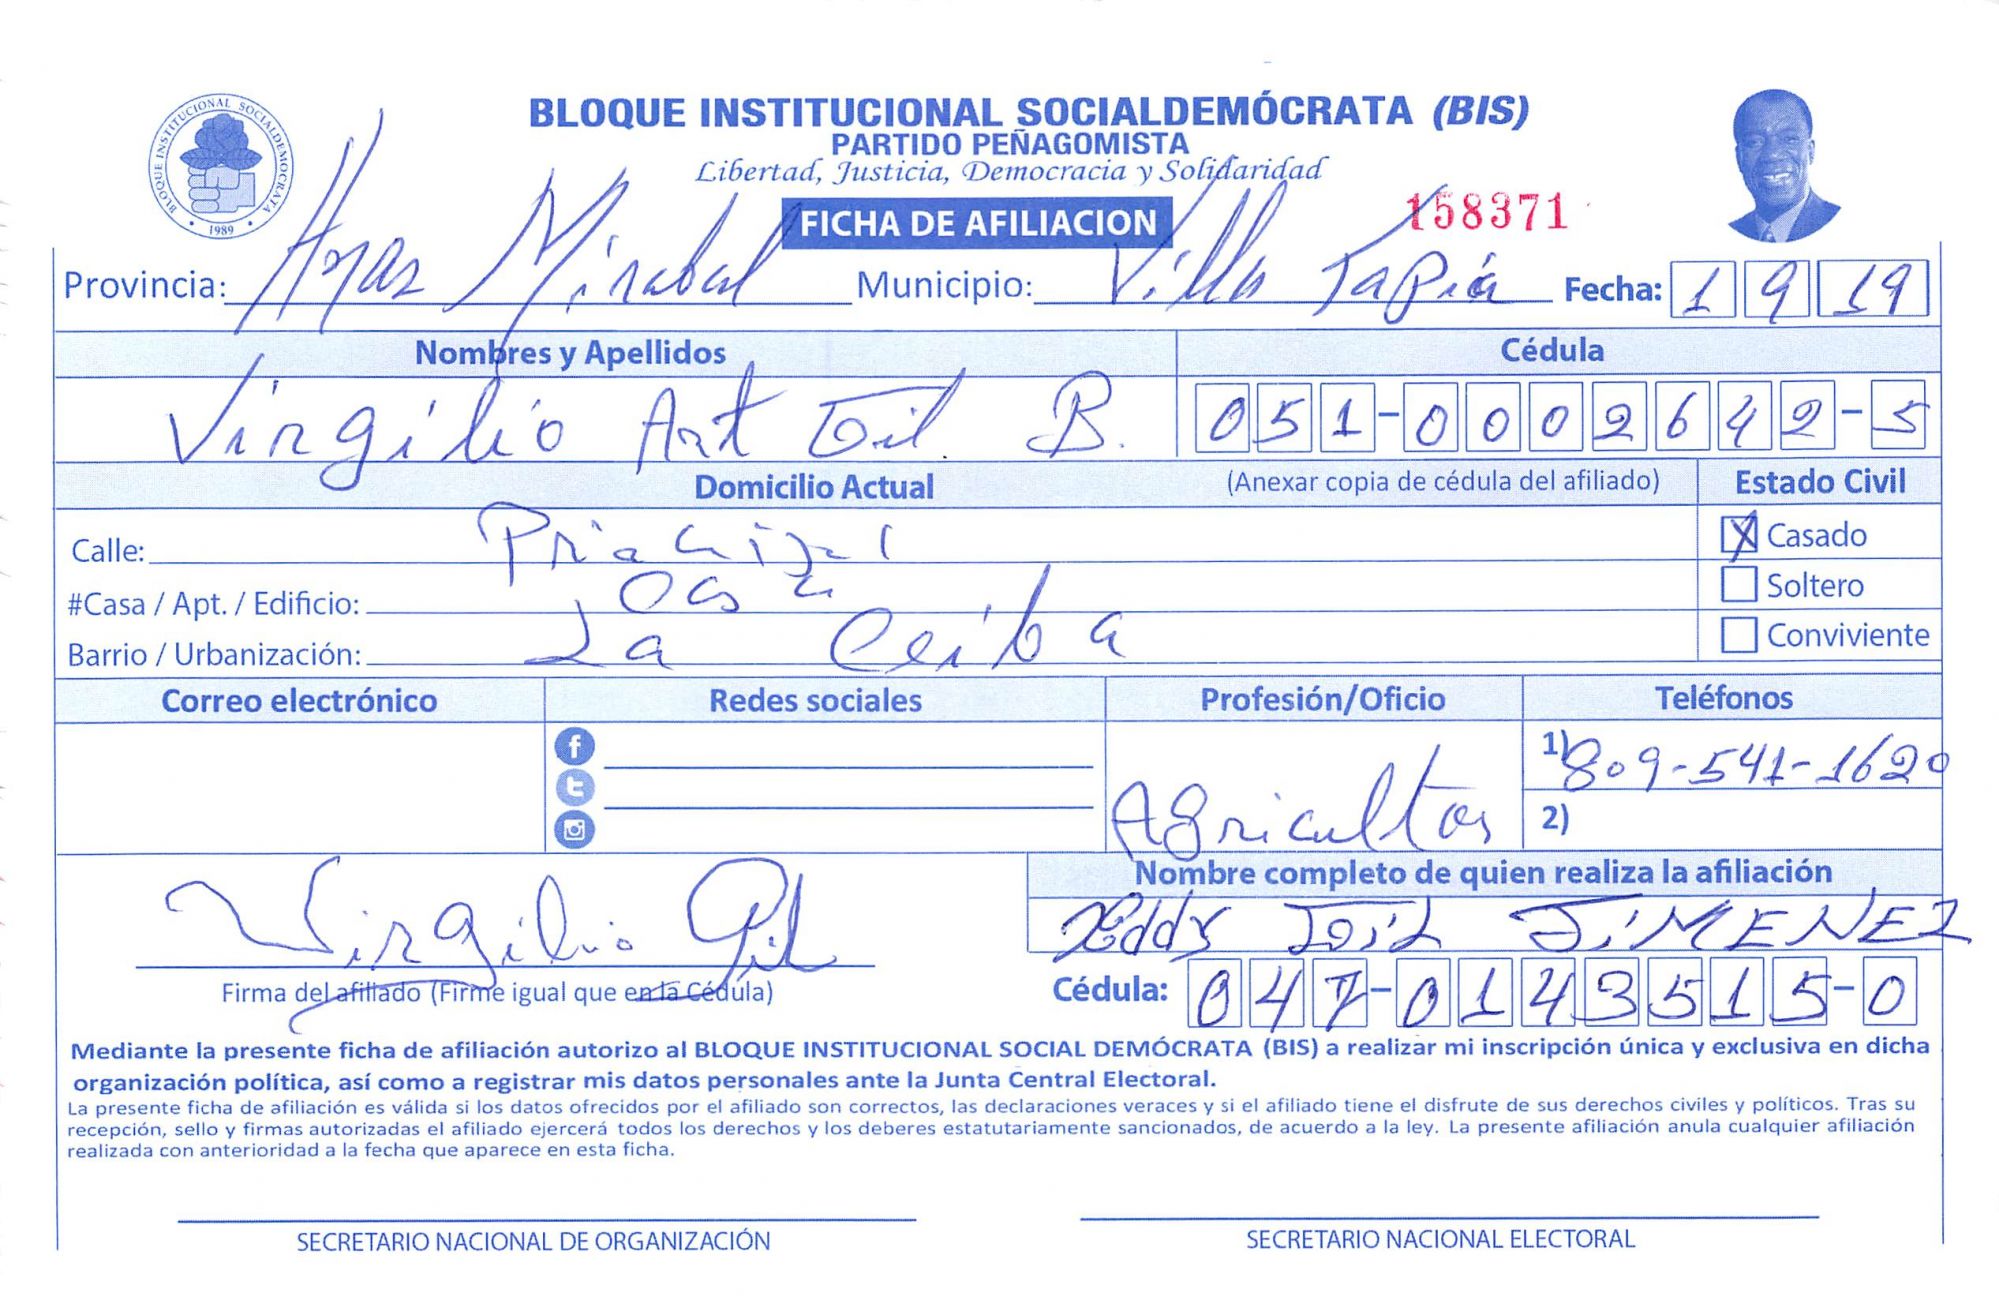 BLOQUE INSTITUCIONAL SOCIALDEMÓCRATA (BIS)
PARTIDO PEÑAGOMISTA
Libertad, Justicia, Democracia y Solidaridad
BLOQUE INSTITUCIONAL SOCIALDEMOCRATA
1989
FICHA DE AFILIACION
158371
Provincia: Hnas Mirabal Municipio: Villa Tapia Fecha: 1 9 19
Nombres y Apellidos Cédula
Virgilio Ant Gil B. 051-0002642-5
Domicilio Actual (Anexar copia de cédula del afiliado) Estado Civil
Calle: Principal X Casado
#Casa / Apt. / Edificio: Casa Soltero
Barrio / Urbanización: La Ceiba Conviviente
Correo electrónico Redes sociales Profesión/Oficio Teléfonos
Agricultor 1) 809-541-1620
2)
Nombre completo de quien realiza la afiliación
Virgilio Gil JiMENEZ
Firma del afiliado (Firme igual que en la Cédula) Cédula: 047-0143515-0
Mediante la presente ficha de afiliación autorizo al BLOQUE INSTITUCIONAL SOCIAL DEMÓCRATA (BIS) a realizar mi inscripción única y exclusiva en dicha
organización política, así como a registrar mis datos personales ante la Junta Central Electoral.
La presente ficha de afiliación es válida si los datos ofrecidos por el afiliado son correctos, las declaraciones veraces y si el afiliado tiene el disfrute de sus derechos civiles y políticos. Tras su
recepción, sello y firmas autorizadas el afiliado ejercerá todos los derechos y los deberes estatutariamente sancionados, de acuerdo a la ley. La presente afiliación anula cualquier afiliación
realizada con anterioridad a la fecha que aparece en esta ficha.
SECRETARIO NACIONAL DE ORGANIZACIÓN SECRETARIO NACIONAL ELECTORAL